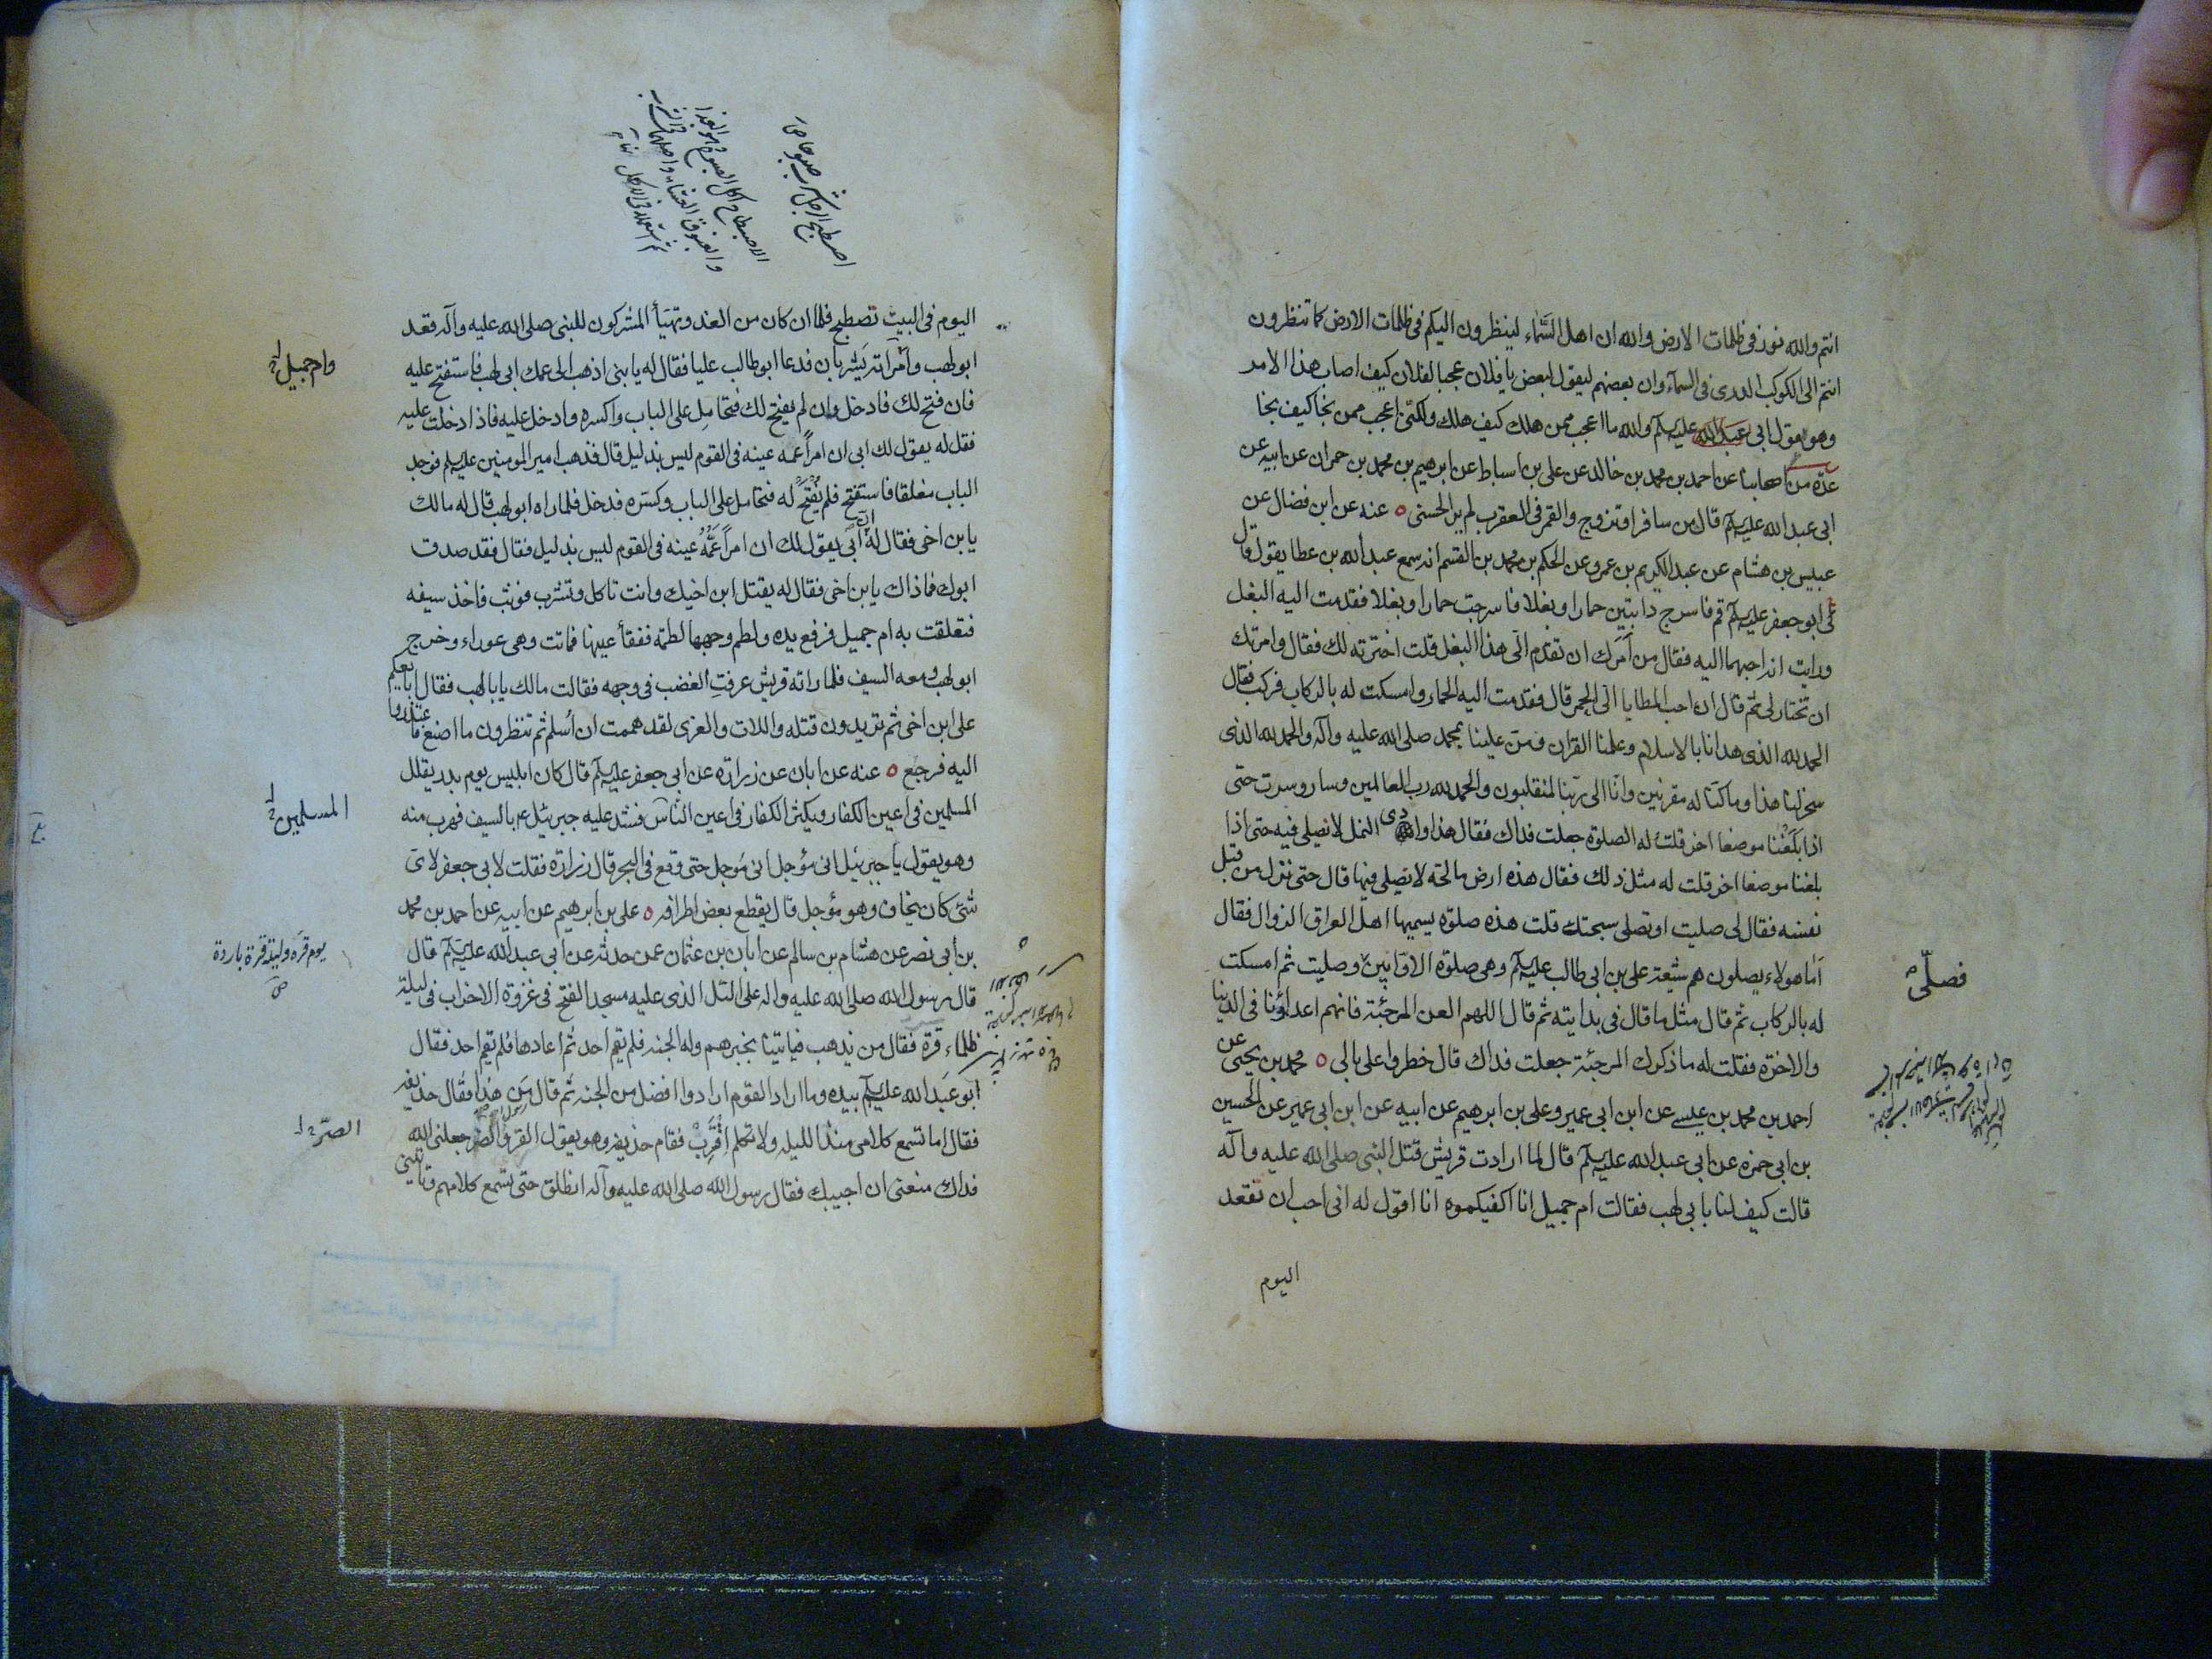 انتم والله نور فى ظلمات الارض والله ان اهل السَّمَاء لينظرون اليكم فى ظلمات الارض كما تنظرون
انتم الى الكوكب الدرى فى السمآء وان بعضهم ليقول لبعض يا فلان عجبا لفلان كيف اصاب هذا الامر
وهو قول ابى عبد الله عليه السلم والله ما اعجب ممن هلك كيف هلك ولكنى اعجب ممن نجا كيف نجا
عدة من اصحابنا عن احمد بن محمد بن خالد عن على بن اسباط عن ابرهيم بن محمد بن حمران عن ابيه عن
ابى عبد الله عليه السلم قال من سافر او تزوج والقمر فى العقرب لم ير الحسنى ٥ عنه عن ابن فضال عن
عبيس بن هشام عن عبد الكريم بن عمرو عن الحكم بن محمد بن القسم انه سمع عبد الله بن عطا يقول قال
لى ابو جعفر عليه السلم قم فاسرج دابتين حمارا وبغلا فاسرجت حمارا وبغلا فقدمت اليه البغل
ورايت انه احبهما اليه فقال من اَمَرَك ان تقدم الَى هذا البغل قلت اخترته لك فقال وامرتك
ان تختار لى ثم قال ان احب المطايا الَى الحمر قال فقدمت اليه الحمار وامسكت له بالركاب فركب فقال
الحمد لله الذى هدانا بالاسلام وعلمنا القران ومن علينا بمحمد صلى الله عليه وآله والحمد لله الذى
سخر لنا هذا وما كنا له مقرنين وانا الى ربنا لمنقلبون والحمد لله رب العالمين وسار وسرت حتى
اذا بَلَغْنا موضعا اخر قلت له الصلوة جعلت فداك فقال هذا وادى النمل لا نصلى فيه حتى اذا
بلغنا موضعا اخر قلت له مثل ذلك فقال هذه ارض مالحة لا نصلى فيها قال حتى نزل من قبل
نفسه فقال لى صليت او تصلى سبحتك قلت هذه صلوة يسميها اهل العراق الزوال فقال
اَمَا هولاء يصلون هم شيعة على بن ابى طالب عليه السلم وهى صلوة الاوابين وصليت ثم امسكت
فصلّى
له بالركاب ثم قال مثل ما قال فى بدايته ثم قال اللهم العن المرجئة فانهم اعداؤنا فى الدنيا
والاخرة فقلت له ما ذكرك المرجئة جعلت فداك قال خطروا على بالى ٥ محمد بن يحيى عن
احمد بن محمد بن عيسى عن ابن ابى عمير وعلى بن ابرهيم عن ابيه عن ابن ابى عمير عن الحسين
بن ابى حمزه عن ابى عبد الله عليه السلم قال لما ارادت قريش قتل النبى صلى الله عليه وآله
قالت كيف لنا بابى لهب فقالت ام جميل انا اكفيكموه انا اقول له انى احب ان تقعد
اليوم
اصطبح الرجل شرب صبوحا
اليوم فى البيت تصطبح فلما ان كان من الغد وتهيأ المشركون للنبى صلى الله عليه وآله قعد
ابو لهب وامْرَاَته يَشربان فدعا ابو طالب عليا فقال له يا بنى اذهب الى عمك ابى لهب فاستفتح عليه
وام جميل
فان فتح لك فادخل وان لم يفتح لك فتحامل على الباب واكسره وادخل عليه فاذا دخلت عليه
فقل له يقول لك ابى ان امرأ عمه عينه فى القوم ليس بذليل قال فذهب امير المومنين عليه السلم فوجد
الباب مغلقا فاستفتح فلم يُفتَح له فتحامل على الباب وكسره فدخل فلما راه ابو لهب قال له مالك
يا بن اخى فقال له اَبى يقول لك ان امرأ عَمُّهُ عينه فى القوم ليس بذليل فقال فقد صدق
ابوك فما ذاك يا بن اخى فقال له يقتل ابن اخيك وانت تاكل وتشرب فوثب فاخذ سيفه
فتعلقت به ام جميل فرفع يده ولطم وجهها لطمة ففقأ عينها فماتت وهى عوراء وخرج
ابو لهب ومعه السيف فلما راته قريش عرفتِ الغضب فى وجهه فقالت مالك يا با لهب فقال ابايعكم
على ابن اخى ثم تريدون قتله واللات والعزى لقد هممت ان اُسلم ثم تنظرون ما اصنع فاعتذروا
اليه فرجع ٥ عنه عن ابان عن زرارة عن ابى جعفر عليه السلم قال كان ابليس يوم بدر يقلل
المسلمين فى اعين الكفار ويكثر الكفار فى اعين الناس فشد عليه جبرئيل ع بالسيف فهرب منه
المسلمين
وهو يقول يا جبرئيل انى مؤجل انى مؤجل حتى وقع فى البحر قال زرارة فقلت لابى جعفر لاى
شىء كان يخاف وهو مؤجل قال يقطع بعض اطرافه ٥ على بن ابرهيم عن ابيه عن احمد بن محمد
بن ابى نصر عن هشام بن سالم عن ابان بن عثمان عمن حدثه عن ابى عبد الله عليه السلم قال
يوم قرّه وليلة قرة باردة
قال رسول الله صلى الله عليه واله على التل الذى عليه مسجد الفتح فى غزوة الاحزاب فى ليلة
ظلماء قرة فقال من يذهب فياتينا بخبرهم وله الجنة فلم يقم احد ثم اعادها فلم يقم احد فقال
ابو عبد الله عليه السلم بيده وما اراد القوم ارادوا افضل من الجنة ثم قال مَن هذا فقال حذيفه
فقال اما تسمع كلامى منذ الليله ولا تكلم اقترب فقام حذيفه وهو يقول القر والضر جعلنى الله
الضرّ
فداك منعنى ان اجيبك فقال رسول الله صلى الله عليه وآله انطلق حتى تسمع كلامهم وتاتينى